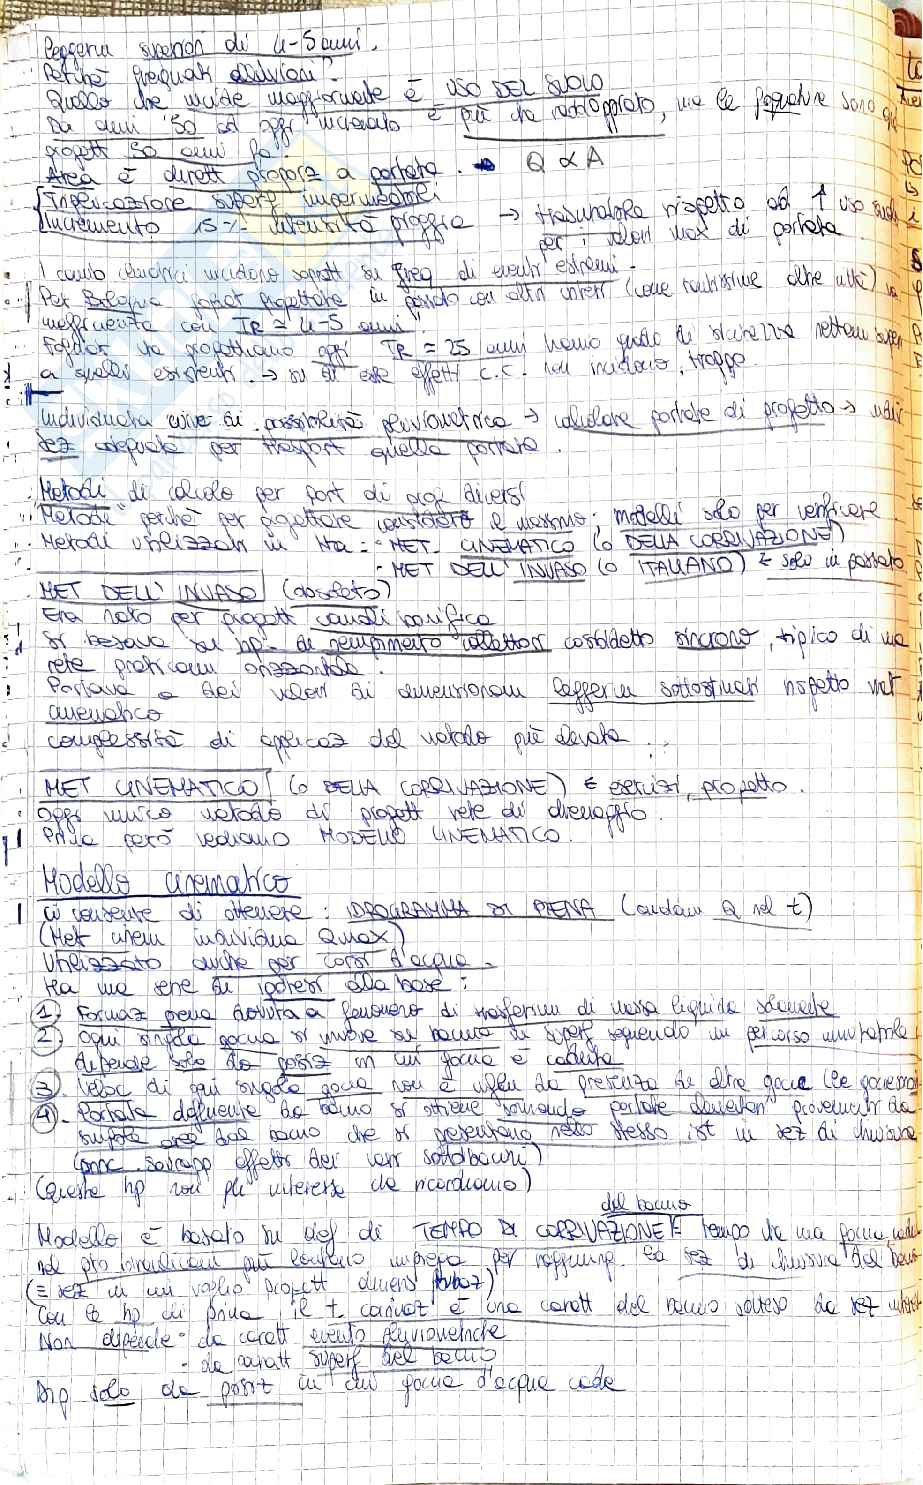 leggerm superiori di 4-5 anni.
Perché frequenti alluvioni?
Quello che incide maggiormente è USO DEL SUOLO
Da anni '50 ad oggi increato è più che raddoppiato, ma le fognature sono
progett 50 anni fa.
Area è dirett proporz a portata. → Q ∝ A
Impermeabilizzazione superf impermeabili
Incremento 15% intensità pioggia → trascurabile rispetto ad ↑ uso suolo
per i valori max di portata.
I camb climatici incidono sopratt su freq di eventi estremi.
Per Bologna fognat progettate in passato con altri criteri (come moltissime altre città)
insufficiente con TR = 4-5 anni.
Fognat che progettiamo oggi TR = 25 anni hanno grado di sicurezza nettam super
a quelli esistenti. → su di esse effetti c.c. non incidono troppo
Individuata curve di possibilità pluviometrica → calcolare portate di progetto →
sez adeguata per trasport quella portata.
Metodi di calcolo per port di prog diversi
"Metodi" perché per progettare considero il massimo; modelli solo per verificare
Metodi utilizzati in Ita: - MET. CINEMATICO (o DELLA CORRIVAZIONE)
- MET DELL'INVASO (o ITALIANO) ← solo in passato
MET DELL'INVASO (obsoleto)
Era nato per progett canali bonifica
si basava su hp. di riempimento collettori cosiddetto sincrono, tipico di una
rete praticam orizzontale.
Portava a dei valori di dimensionam leggerm sottostimati rispetto met
cinematico
complessità di applicaz del metodo più elevata
MET CINEMATICO (o DELLA CORRIVAZIONE) ← esercizi, progetto.
Oggi unico metodo di progett rete di drenaggio.
Prima però vediamo MODELLO CINEMATICO.
Modello cinematico
Ci consente di ottenere: IDROGRAMMA DI PIENA (andam Q nel t)
(Met cinem individua Qmax)
Utilizzato anche per corsi d'acqua.
Ha una serie di ipotesi alla base:
1. Formaz piena dovuta a fenomeno di trasferim di massa liquida solamente
2. Ogni singola goccia si muove su bacino in superf seguendo un percorso immutabile
dipende solo da posiz in cui goccia è caduta
3. Veloc di ogni singola goccia non è influ da presenza di altre gocce
4. Portata defluente da bacino si ottiene sommando portate elementari provenienti da
singole aree del bacino che si presentano nello stesso ist in sez di chiusura
(princ. sovrapp effetti dei vari sottobacini)
(Queste hp non gli interessa che ricordiamo)
Modello è basato su def di TEMPO DI CORRIVAZIONE del bacino = tempo che una goccia
nel pto idraulicam più lontano impiega per raggiunge la sez di chiusura del
(= sez in cui voglio progett dimens tubaz)
Con le hp di prima il t corrivaz è una caratt del bacino sotteso da sez
Non dipende - da caratt evento pluviometriche
- da caratt superf del bacino
Dip solo da posiz in cui goccia d'acqua cade